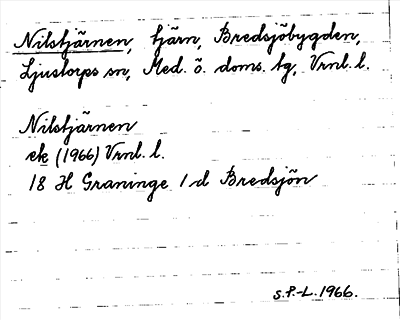 Nilstjärnen, tjärn, Bredsjöbygden,
Ljustorps sn, Med. ö. doms. tg, Vrnl. l.
Nilstjärnen
ek (1966) Vrnl. l.
18 H Graninge 1 d Bredsjön
S.P.-L. 1966.